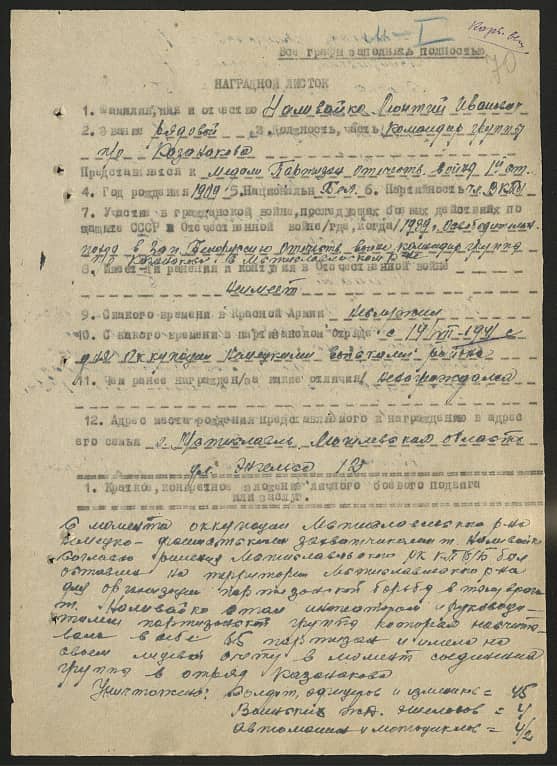 I
70
Все графы заполнять полностью
НАГРАДНОЙ ЛИСТОК
1. Фамилия, имя и отчество Наливайко Леонтий Иванович
2. Звание рядовой 3. Должность, часть командир группы
п/о Казанкова
Представляется к медали Партизан отечеств. войны 1й ст.
4. Год рождения 1909 5. Национальн. Бел. 6. Партийность чл. ВКПб
7. Участие в гражданской войне, последующих боевых действиях по
защите СССР и Отечественной войне/где, когда/ 1939
поход в Зап. Белоруссию отечеств. война командир группы
п/о Казанкова в Мстиславльском р-не
8. Имеет ли ранения и контузии в Отечественной войне
не имеет
9. С какого времени в Красной Армии
10. С какого времени в партизанском отряде с 14 VII - 1941 с
дня оккупации немецкими района
11. Чем ранее награжден/за какие отличия/ не награждался
12. Адрес места рождения представляемого к награждению и адрес
его семьи г. Мстиславль, Могилевской область
ул. Энгельса 125
1. Краткое, конкретное изложение личного боевого подвига
или заслуг.
С момента оккупации Мстиславльского р-на
немецко-фашистскими захватчиками т. Наливайко
согласно решения Мстиславльского РК КП/б/Б был
оставлен на территории Мстиславльского р-на
для организации партизанской борьбы в тылу врага
т. Наливайко стал инициатором и руководи-
телем партизанской группы которая насчиты-
вала в себе 65 партизан и имела на
своем лицевом счету в момент соединения
группы в отряд Казанкова
Уничтожено: Солдат, офицеров и изменник = 45
Воинских ж.д. эшелонов = 4
автомашин и мотоциклов = 4/2